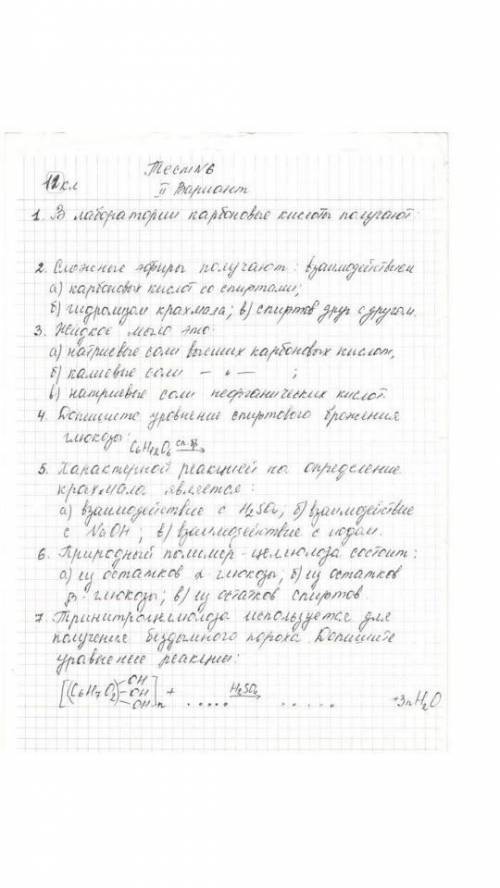 Тест №6
12 кл
II Вариант
1. В лаборатории карбоновые кислоты получают:
2. Сложные эфиры получают: взаимодействием
а) карбоновых кислот со спиртами;
б) гидролизом крахмала; в) спиртов друг с другом.
3. Жидкое мыло это:
а) натриевые соли высших карбоновых кислот,
б) калиевые соли — „ — ;
в) натриевые соли неорганических кислот
4. Допишите уравнение спиртового брожения
глюкозы: C6H12O6 сп. бр →
5. Характерной реакцией на определение
крахмала является:
а) взаимодействие с H2SO4, б) взаимодействие
с NaOH; в) взаимодействие с иодом.
6. Природный полимер - целлюлоза состоит:
а) из остатков α глюкозы; б) из остатков
β- глюкозы; в) из остатков спиртов.
7. Тринитроцеллюлоза используется для
получения бездымного пороха. Допишите
уравнение реакции:
[(C6H7O2) OH OH OH]n + ..... H2SO4 → ..... +3nH2O